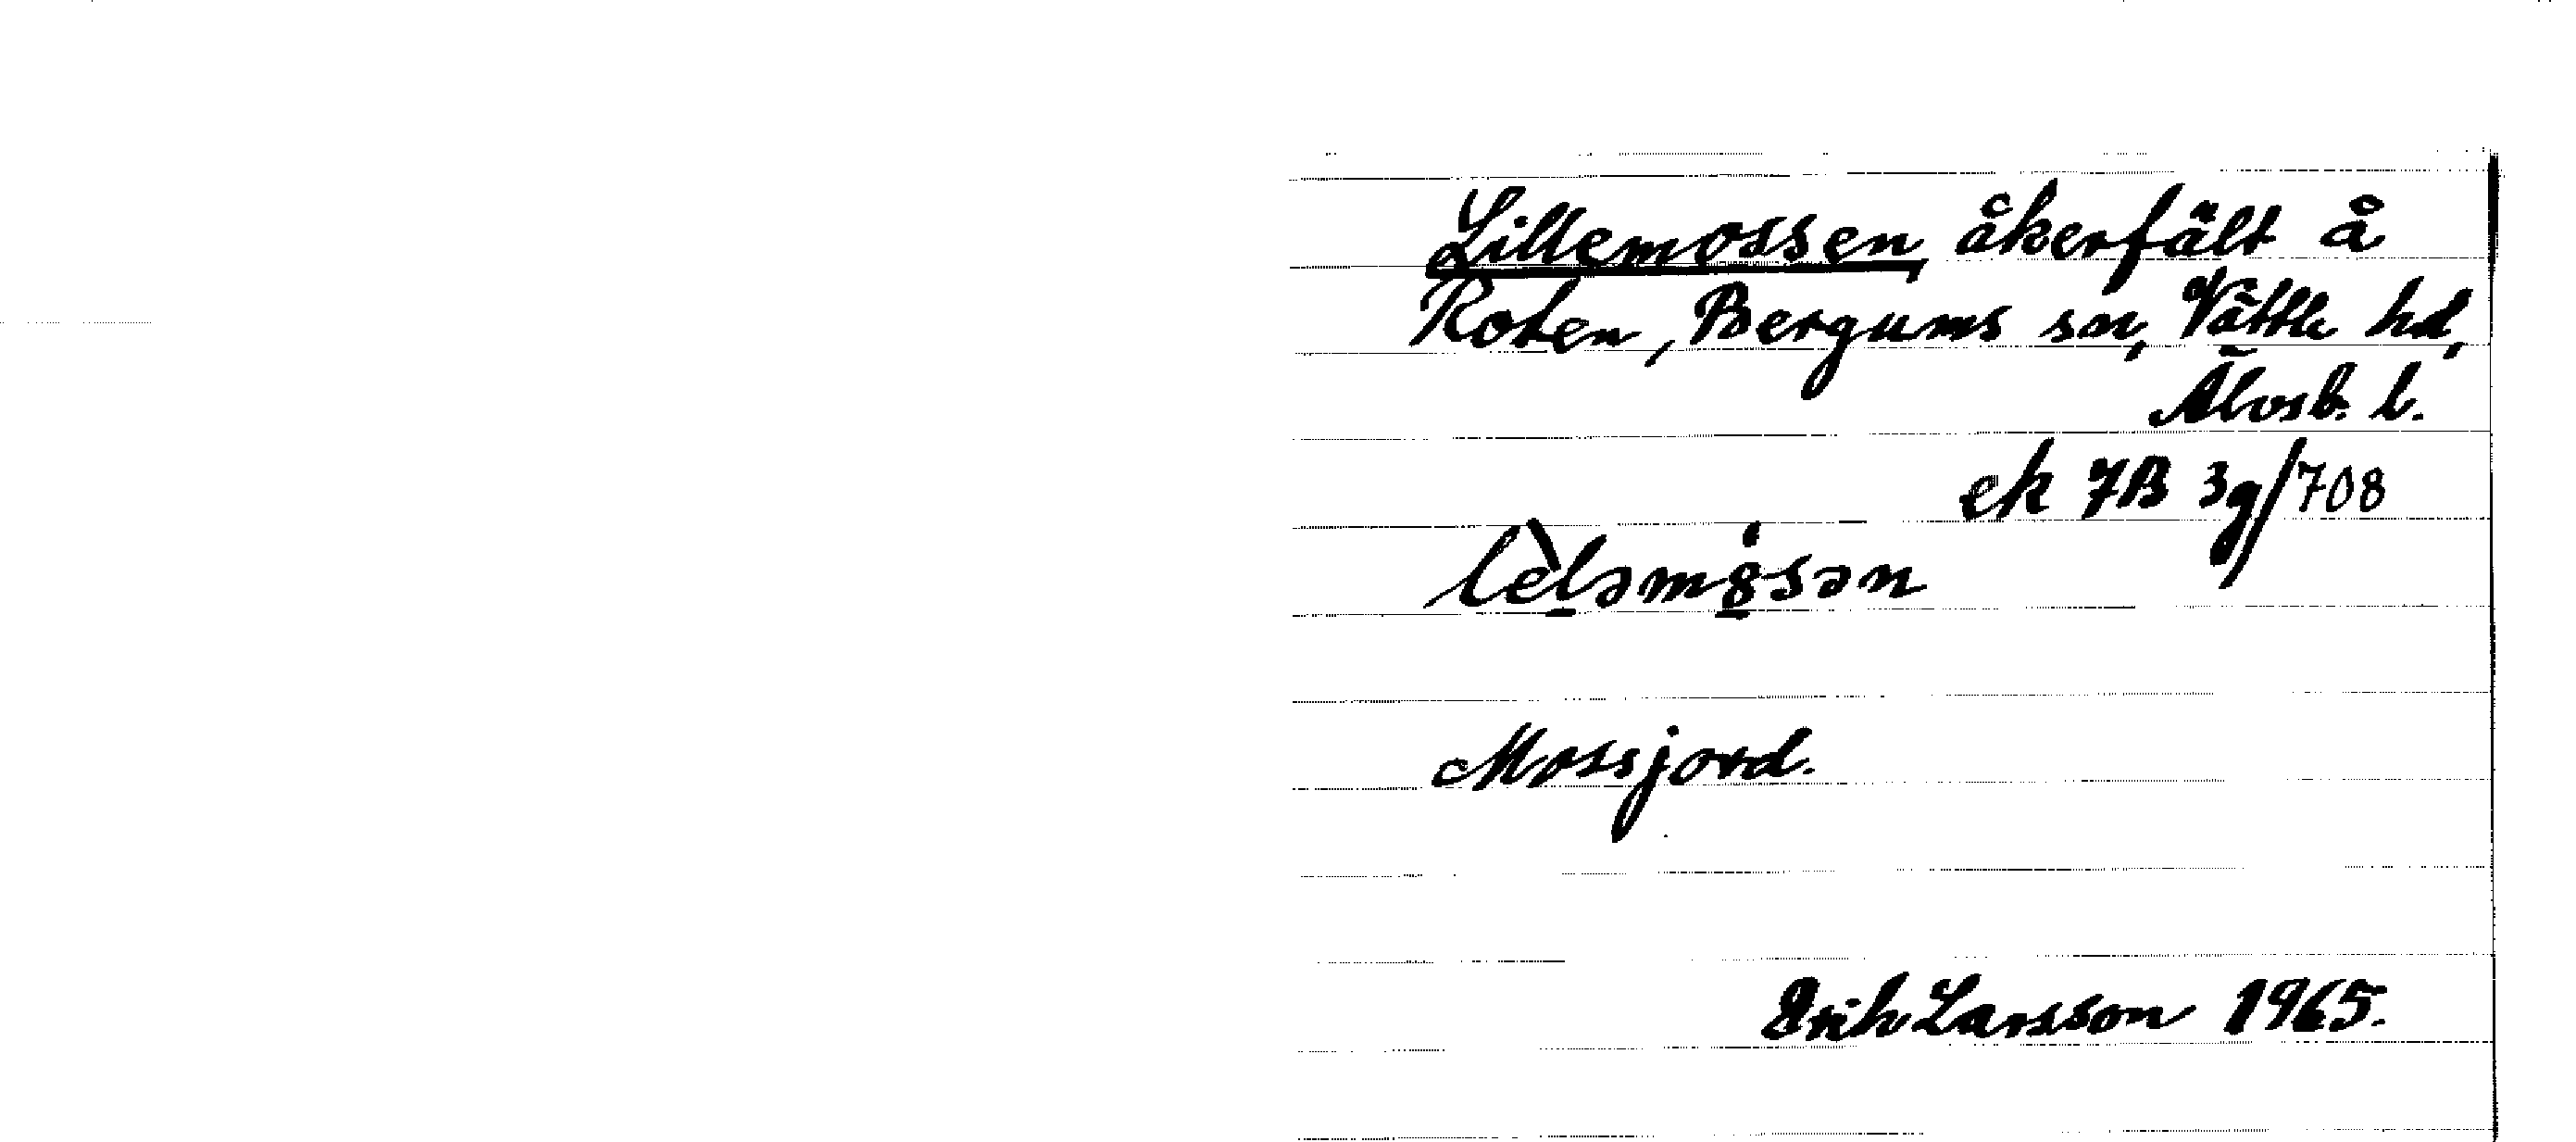 Lillemossen, åkerfält å
Roten, Bergums sn, Vättle hd,
Älvsb. l.
ek 7B 3g/708
lèləm8sən
Mossjord.
Erik Larsson 1965.